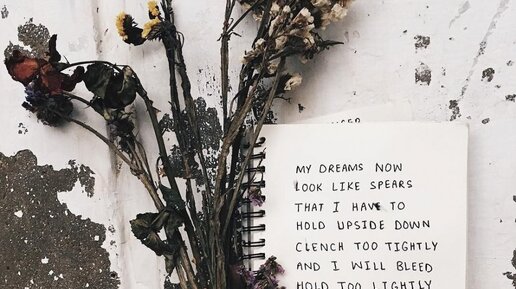 MY DREAMS NOW
LOOK LIKE SPEARS
THAT I HAVE TO
HOLD UPSIDE DOWN
CLENCH TOO TIGHTLY
AND I WILL BLEED
HOLD TOO LIGHTLY